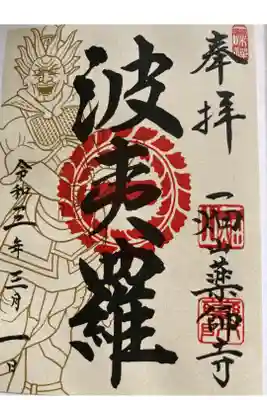 奉拝
一畑山薬師寺
波夷羅
令和三年三月一日